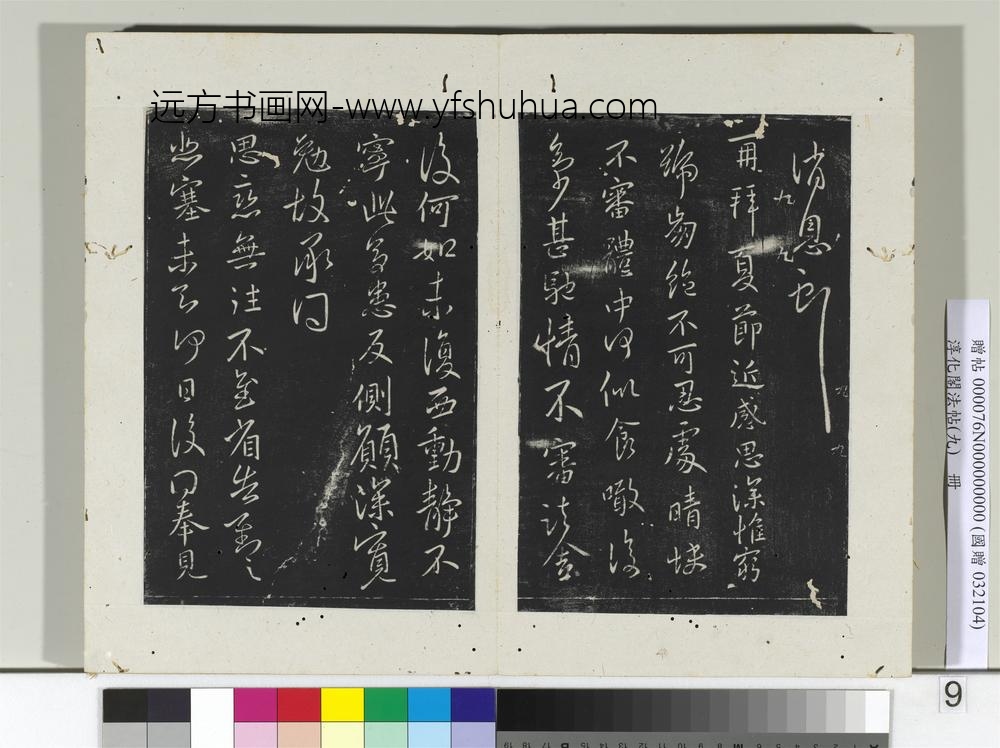 远方书画网-www.yfshuhua.com
消息
九
再拜夏節近感思深惟窮
號崩絶不可忍處晴快
不審體中何似食噉復
多少甚馳情不審諸舍
復何如未復西動靜不
寧此多患反側願深寬
勉故承問
思戀無往不至省告對之
悲塞未知何日復奉見
贈帖 000076N000000000 (國贈 032104)
淳化閣法帖(九) 冊
9